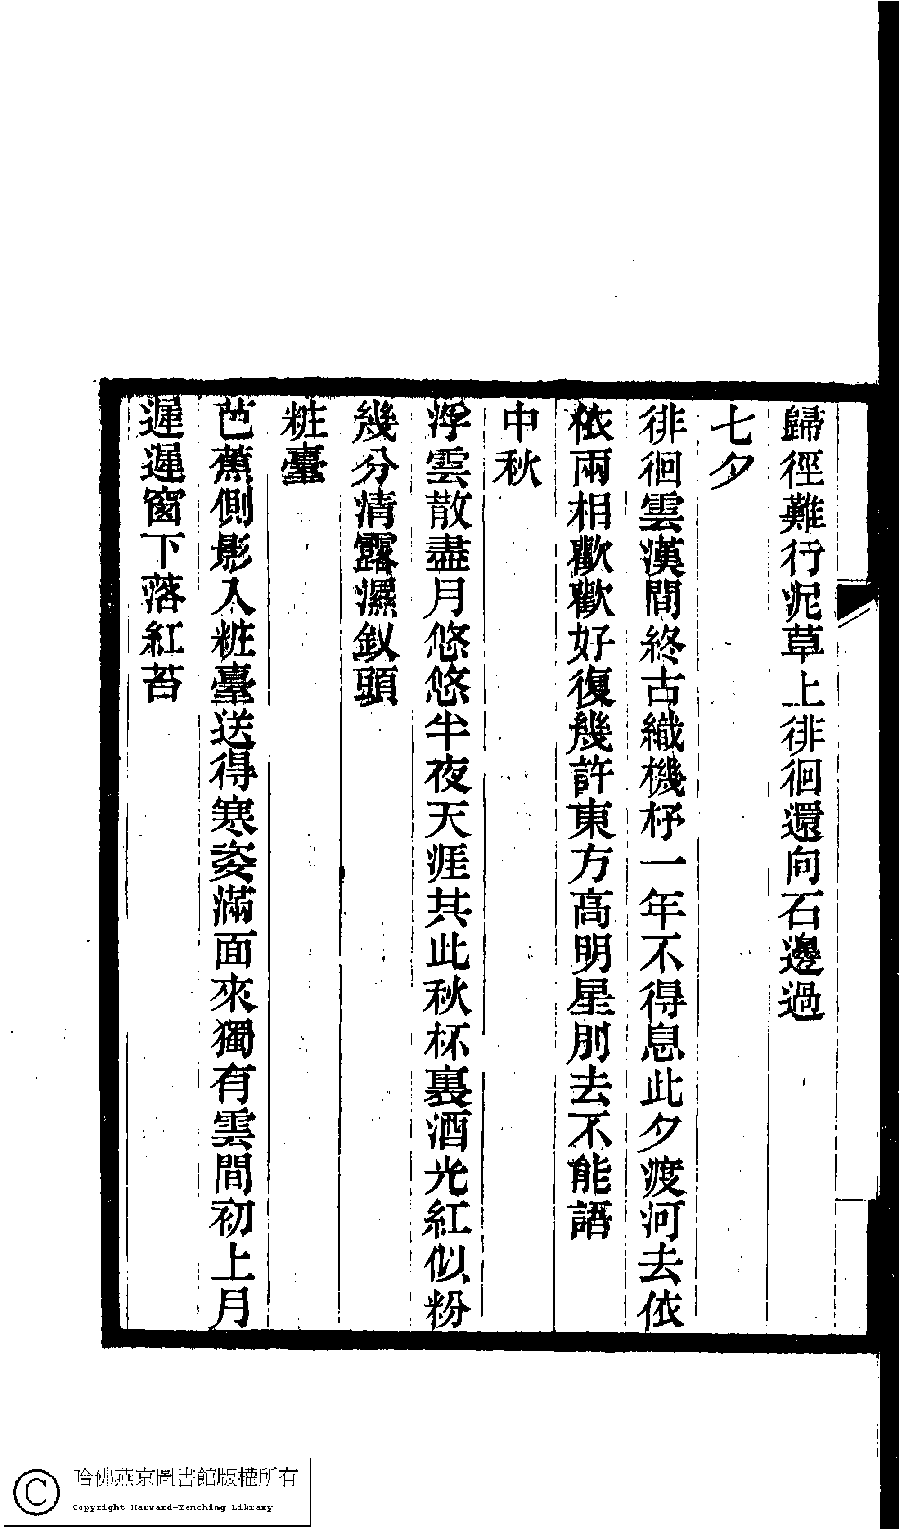 歸徑難行泥草上徘徊還向石邊過
七夕
徘徊雲漢間終古織機杼一年不得息此夕渡河去依
依兩相歡歡好復幾許東方高明星別去不能語
中秋
浮雲散盡月悠悠半夜天涯共此秋杯裏酒光紅似粉
幾分清露濕釵頭
粧臺
芭蕉側影入粧臺送得寒姿滿面來獨有雲間初上月
遲遲窗下落紅苔
哈佛燕京圖書館版權所有
Copyright Harvard-Yenching Library